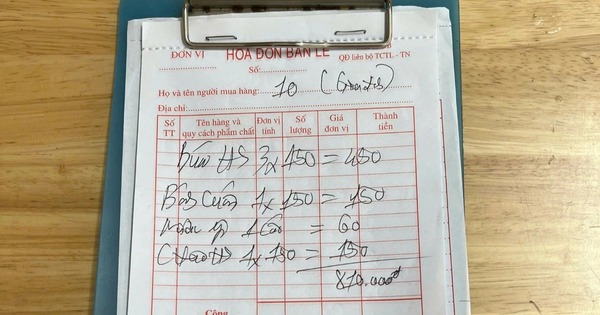 ĐƠN VỊ HÓA ĐƠN BÁN LẺ
QĐ liên bộ TCTL - TN
Số:
Họ và tên người mua hàng: 10
Địa chỉ:
Số TT Tên hàng và quy cách phẩm chất Đơn vị tính Số lượng Giá đơn vị Thành tiền
Bún HS 3 x 150 = 450
Bánh Cuốn 1 x 150 = 150
= 60
Cháo HS 1 x 150 = 150
810.000đ
Cộng